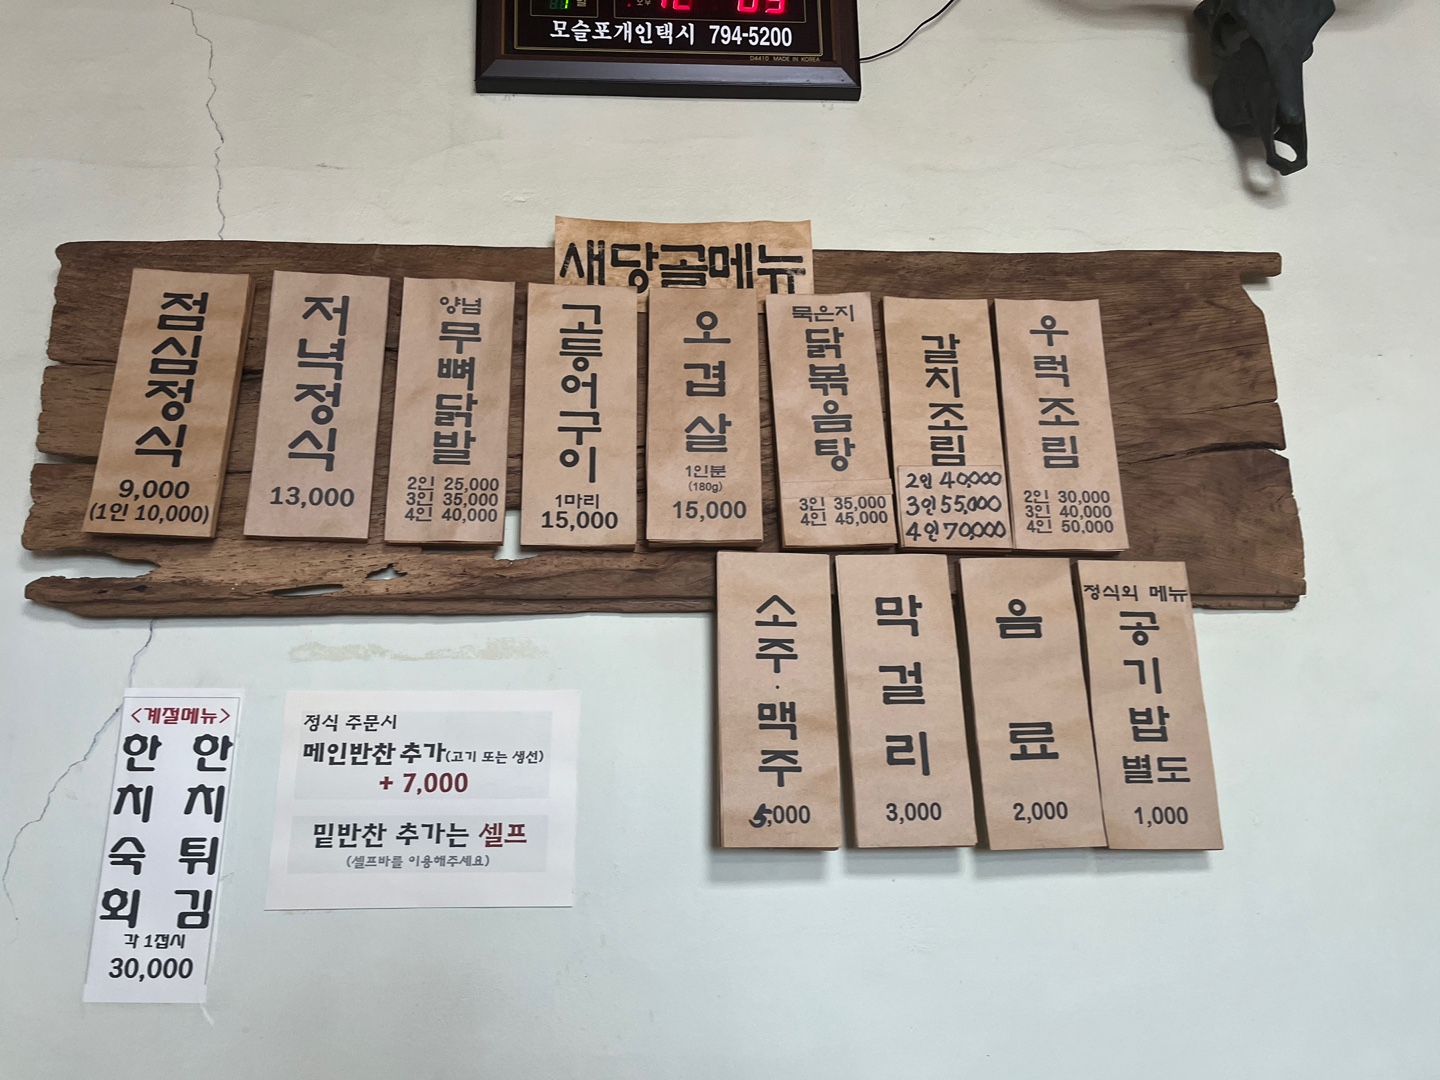 모슬포개인택시 794-5200
D4410 MADE IN KOREA
새당골메뉴
점심정식
9,000
(1인 10,000)
저녁정식
13,000
양념
무뼈닭발
2인 25,000
3인 35,000
4인 40,000
고등어구이
1마리
15,000
오겹살
1인분
(180g)
15,000
묵은지
닭볶음탕
3인 35,000
4인 45,000
갈치조림
2인 40,000
3인 55,000
4인 70,000
우럭조림
2인 30,000
3인 40,000
4인 50,000
소주·맥주
5,000
막걸리
3,000
음료
2,000
정식외 메뉴
공기밥
별도
1,000
<계절메뉴>
한치숙회
한치튀김
각 1접시
30,000
정식 주문시
메인반찬 추가(고기 또는 생선)
+ 7,000
밑반찬 추가는 셀프
(셀프바를 이용해주세요)